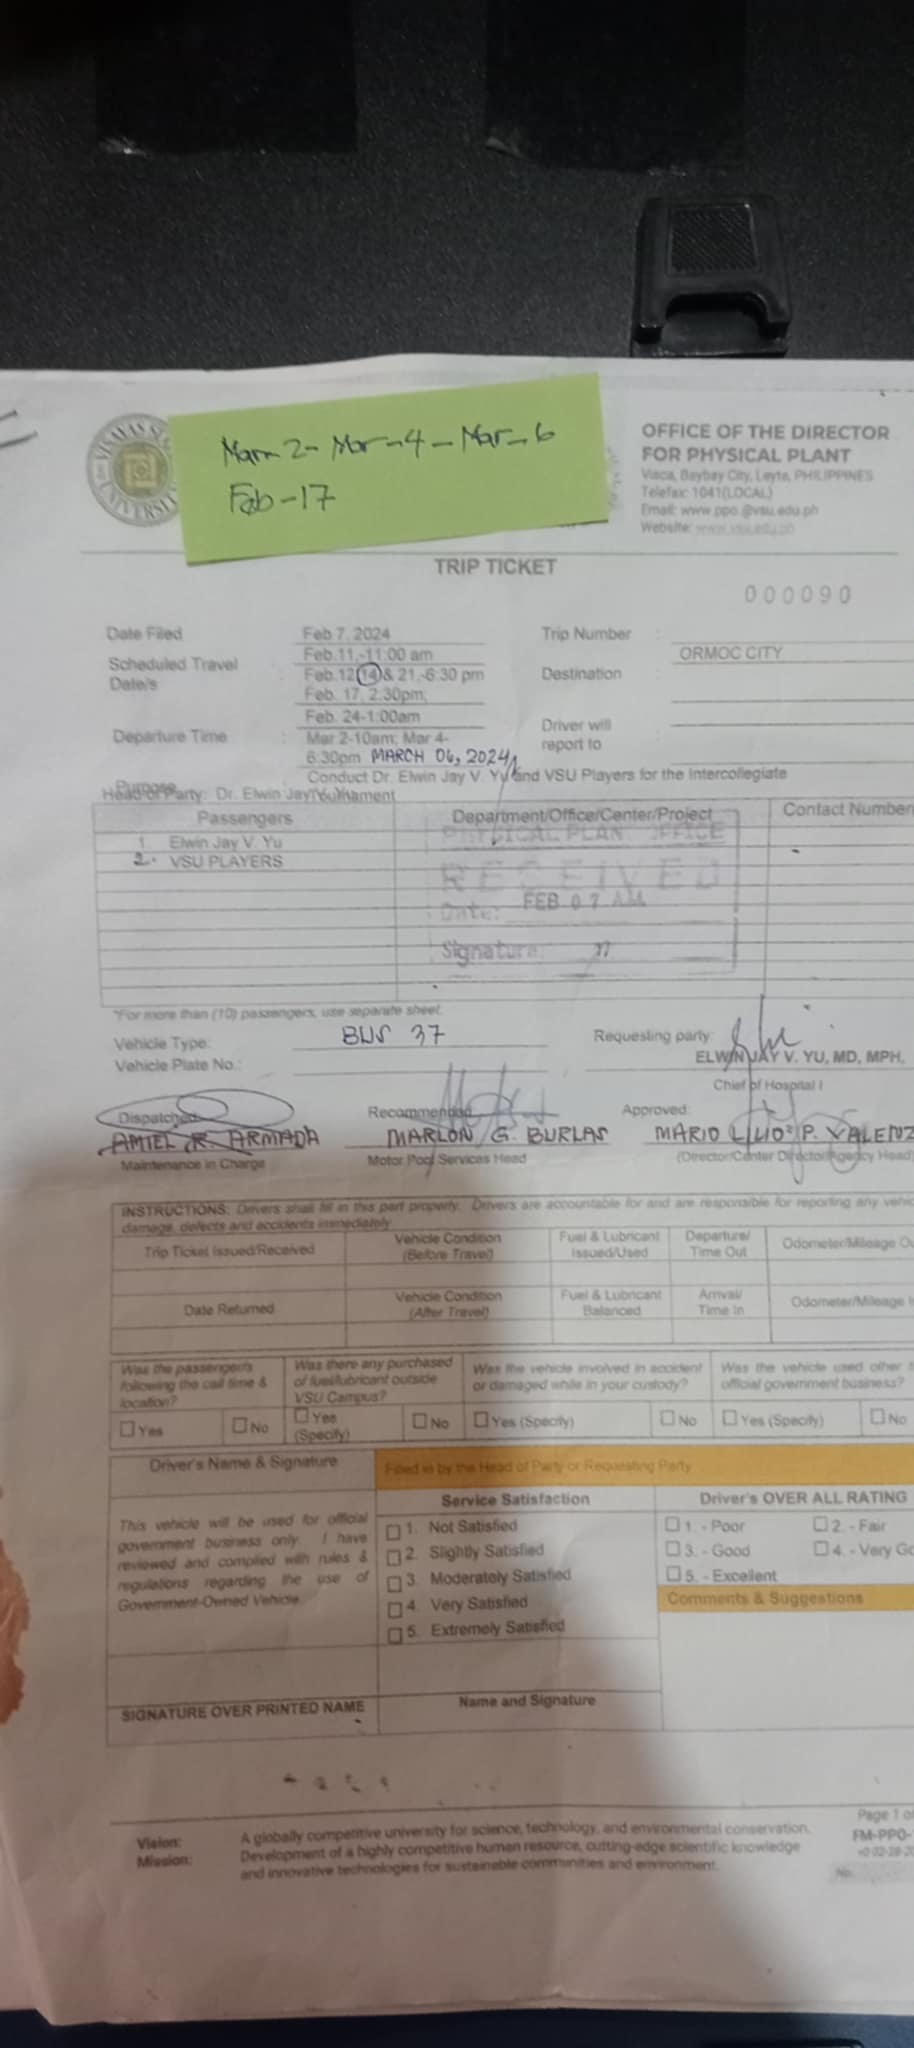 Mar 2- Mar-4-Mar-6
Feb-17
VISAYAS
UNIVERSITY
OFFICE OF THE DIRECTOR
FOR PHYSICAL PLANT
Visca, Baybay City, Leyte, PHILIPPINES
Telefax: 1041(LOCAL)
Email: www.ppo.@vsu.edu.ph
Website: www.vsu.edu.ph
TRIP TICKET
000090
Date Filed Feb 7, 2024 Trip Number :
Scheduled Travel Date/s : Feb.11,-11:00 am
Feb.12,14,& 21,-6:30 pm
Feb. 17, 2:30pm,
Feb. 24-1:00am
Destination ORMOC CITY
Departure Time : Mar 2-10am; Mar 4-
6:30pm MARCH 06, 2024
Driver will report to :
Purpose Conduct Dr. Elwin Jay V. Yu and VSU Players for the Intercollegiate
Head of Party: Dr. Elwin Jay Yu Tournament
Passengers Department/Office/Center/Project Contact Number
1. Elwin Jay V. Yu
2. VSU PLAYERS
PHYSICAL PLAN OFFICE
RECEIVED
Date: FEB 07 AM
Signature:
*For more than (10) passengers, use separate sheet.
Vehicle Type: BUS 37 Requesting party:
Vehicle Plate No.: ELWIN JAY V. YU, MD, MPH,
Chief of Hospital I
Dispatched: Recommended Approved:
AMIEL R. ARMADA MARLON G. BURLAS MARIO LILIO P. VALENZ
Maintenance in Charge Motor Pool Services Head (Director/Center Director/Agency Head)
INSTRUCTIONS: Drivers shall fill in this part properly. Drivers are accountable for and are responsible for reporting any vehic
damage, defects and accidents immediately
Trip Ticket Issued/Received Vehicle Condition (Before Travel) Fuel & Lubricant Issued/Used Departure/ Time Out Odometer/Mileage Ou
Date Returned Vehicle Condition (After Travel) Fuel & Lubricant Balanced Arrival/ Time In Odometer/Mileage I
Was the passengers following the call time & location? Was there any purchased of fuel/lubricant outside VSU Campus? Was the vehicle involved in accident or damaged while in your custody? Was the vehicle used other official government business?
Yes No Yes (Specify) No Yes (Specify) No Yes (Specify) No
Driver's Name & Signature Filled in by the Head of Party or Requesting Party
Service Satisfaction Driver's OVER ALL RATING
This vehicle will be used for official
government business only. I have
reviewed and complied with rules &
regulations regarding the use of
Government-Owned Vehicle.
1. Not Satisfied
2. Slightly Satisfied
3. Moderately Satisfied
4. Very Satisfied
5. Extremely Satisfied
1. - Poor 2. - Fair
3. - Good 4. - Very Go
5. - Excellent
Comments & Suggestions
SIGNATURE OVER PRINTED NAME Name and Signature
Page 1 o
Vision: A globally competitive university for science, technology, and environmental conservation.
Mission: Development of a highly competitive human resource, cutting-edge scientific knowledge
and innovative technologies for sustainable communities and environment.
FM-PPO-
No.